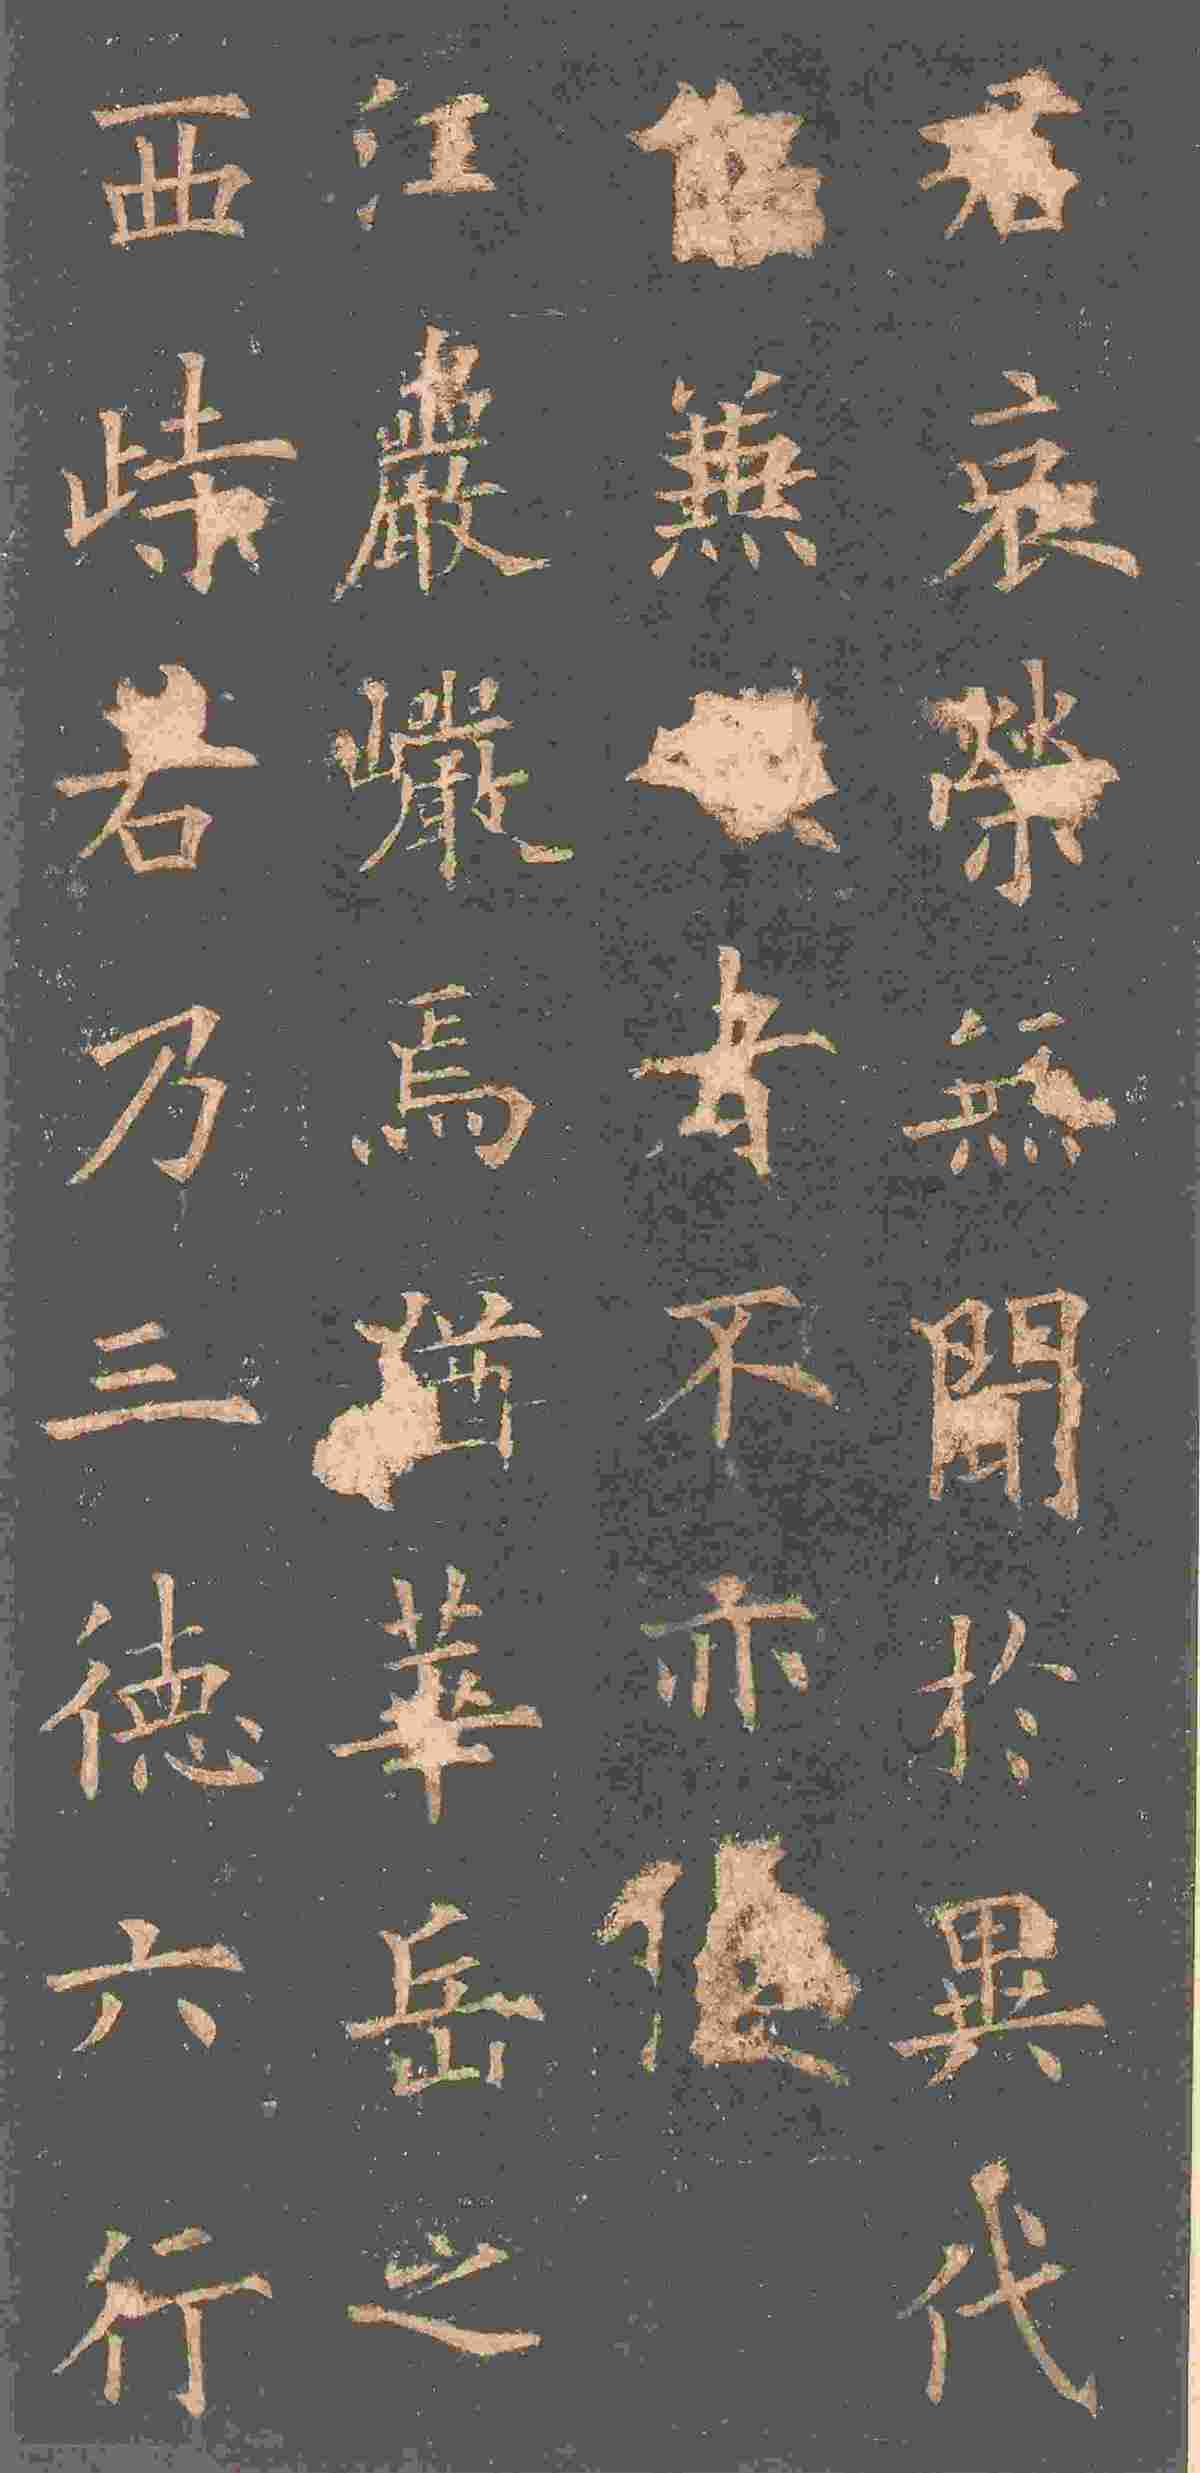 哀榮無間於異代
兼者不亦
江巖巗焉猶華岳之
西峙若乃三德六行